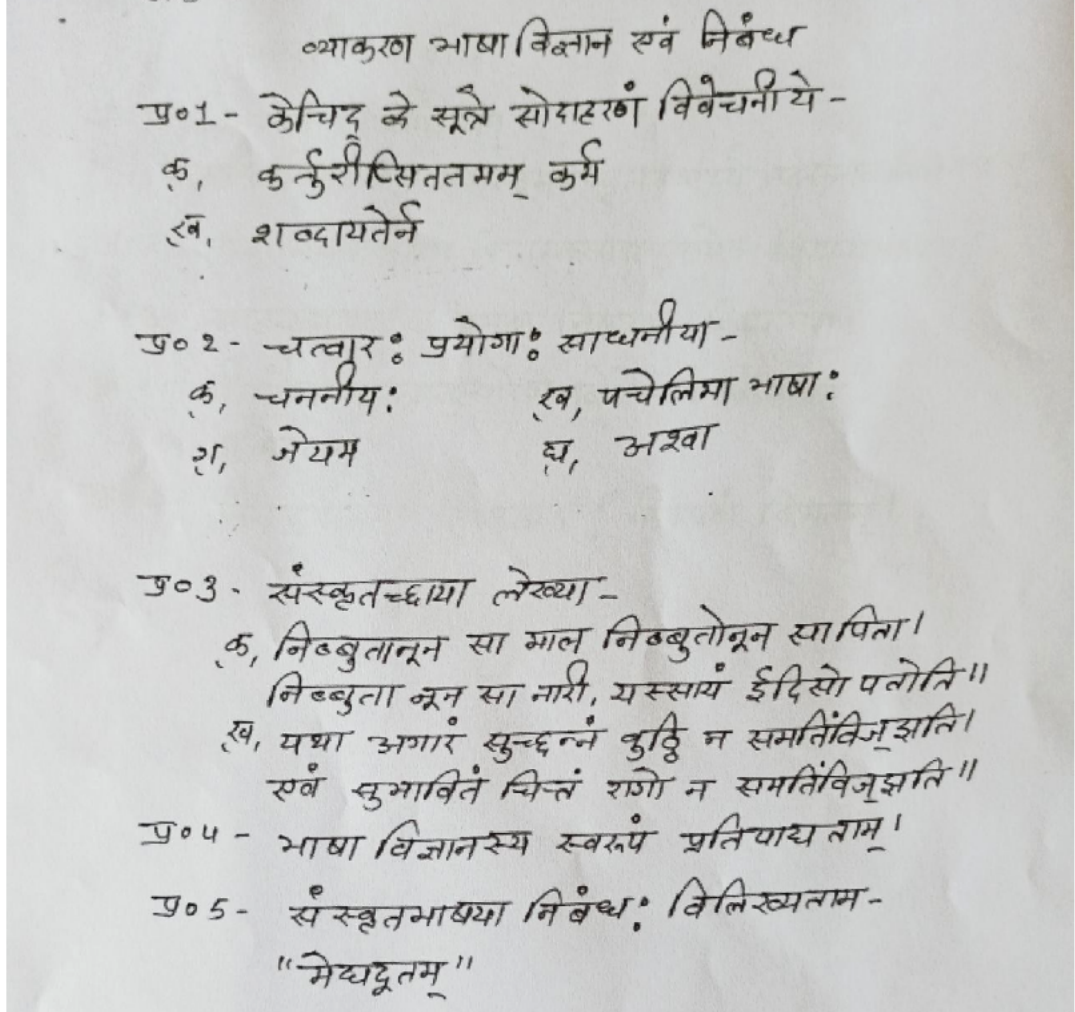 व्याकरण भाषा विज्ञान एवं निबंध
प्र०1- केचिद् के सूत्रे सोदाहरणं विवेचनीये-
क, कर्तुरीप्सिततमम् कर्म
ख, शब्दायतेर्न
प्र० 2 - चत्वारः प्रयोगाः साधनीया-
क, चननीयः ख, पचेलिमा भाषाः
ग, जेयम घ, अश्वा
प्र०3 - संस्कृतच्छाया लेख्या-
क, निब्बुतानून सा माल निब्बुतोनून सा पिता।
निब्बुता नून सा नारी, यस्सायं ईदिसो पतोति॥
ख, यथा अगारं सुच्छन्नं वुठ्ठि न समतिंविज्झति।
एवं सुभावितं चित्तं रागो न समतिंविज्झति॥
प्र०4 - भाषा विज्ञानस्य स्वरूपं प्रतिपाद्यताम्।
प्र०5- संस्कृतभाषया निबंधः विलिख्यताम-
"मेघदूतम्"